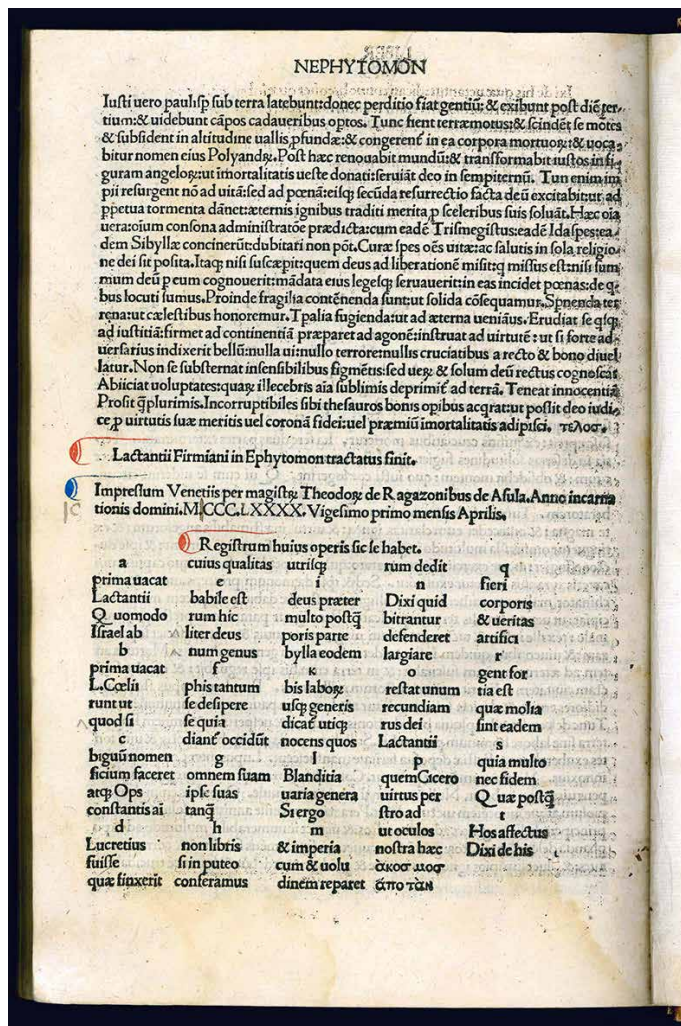 NEPHYTOMON
Iusti uero paulisp sub terra latebunt:donec perditio fiat gentiū:& exibunt post diē ter-
tium:& uidebunt cāpos cadaueribus optos. Tunc fient terræmotus:& scindēt se mōtes
& subsident in altitudine uallis pfundæ:& congerent̄ in ea corpora mortuoꝝ:& uoca
bitur nomen eius Polyandꝝ. Post hæc renouabit mundū:& transformabit iustos in fi-
guram angeloꝝ:ut īmortalitatis ueste donati:seruiāt deo in sempiternū. Tun enim im
pii resurgent nō ad uitā:sed ad pœnā:eisꝗ secūda resurrectio facta deū excitabit:ut ad
ppetua tormenta dānet:æternis ignibus traditi merita p sceleribus suis soluāt. Hæc oīa
uera:oīum consona administratōe prædicta:cum eadē Trismegistus:eadē Idaspes:ea
dem Sibyllæ concinerūt:dubitari non pōt. Curæ spes oēs uitæ:ac salutis in sola religio
ne dei sit posita. Itaꝗ nisi suscæpit:quem deus ad liberationē misit:q missus est:nisi sum
mum deū p eum cognouerit:mādata eius legesꝗ seruauerit:in eas incidet pœnas:de q
bus locuti sumus. Proinde fragilia contēnenda sunt:ut solida cōsequamur. Spnenda ter
rena:ut cælestibus honoremur. Tpalia fugienda:ut ad æterna ueniāus. Erudiat se qsꝗ
ad iustitiā:firmet ad continentiā præparet ad agonē:instruat ad uirtutē: ut si forte ad
uersarius indixerit bellū:nulla ui:nullo terrore:nullis cruciatibus a recto & bono diuel
latur. Non se substernat insensibilibus figmētis:sed ueꝝ & solum deū rectus cognoscat
Abiiciat uoluptates:quaꝝ illecebris aīa sublimis deprimit̄ ad terrā. Teneat innocentiā
Prosit q̄plurimis. Incorruptibiles sibi thesauros bonis opibus acqrat:ut possit deo iudi-
ce p uirtutis suæ meritis uel coronā fidei:uel præmiū imortalitatis adipisci. τελοσ.
Lactantii Firmiani in Ephytomon tractatus finit.
Impressum Venetiis per magistꝝ Theodoꝝ de Ragazonibus de Asula. Anno incarna
tionis domini.M.CCC.LXXXX. Vigesimo primo mensis Aprilis.
Registrum huius operis sic se habet.
a
prima uacat
Lactantii
Quomodo
Israel ab
b
prima uacat
L. Cœlii
runt ut
quod si
c
biguū nomen
ficium faceret
atꝗ Ops
constantis ai
d
Lucretius
fuisse
quæ finxerīt
cuius qualitas
e
babile est
rum hic
liter deus
num genus
f
phis tantum
se desipere
se quia
diant̄ occidūt
g
omnem suam
ipse suas
tanq̄
h
non libris
si in puteo
conferamus
utrisꝗ
i
deus præter
multo postq̄
poris parte
bylla eodem
k
bis laboꝝ
usꝗ generis
dicat̄ utiꝗ
nocens quos
l
Blanditia
uaria genera
Si ergo
m
& imperia
cum & uolu
dinem reparet
rum dedit
n
Dixi quid
bitrantur
defenderet
largiare
o
restat unum
recundiam
rus dei
Lactantii
p
quem Cicero
uirtus per
stro ad
ut oculos
nostra hæc
ὰκοσ μοσ
ἄπο τὰν
q
fieri
corporis
& ueritas
artifici
r
gent for
tia est
quæ molia
sint eadem
s
quia multo
nec fidem
Quæ postq̄
t
Hos affectus
Dixi de his